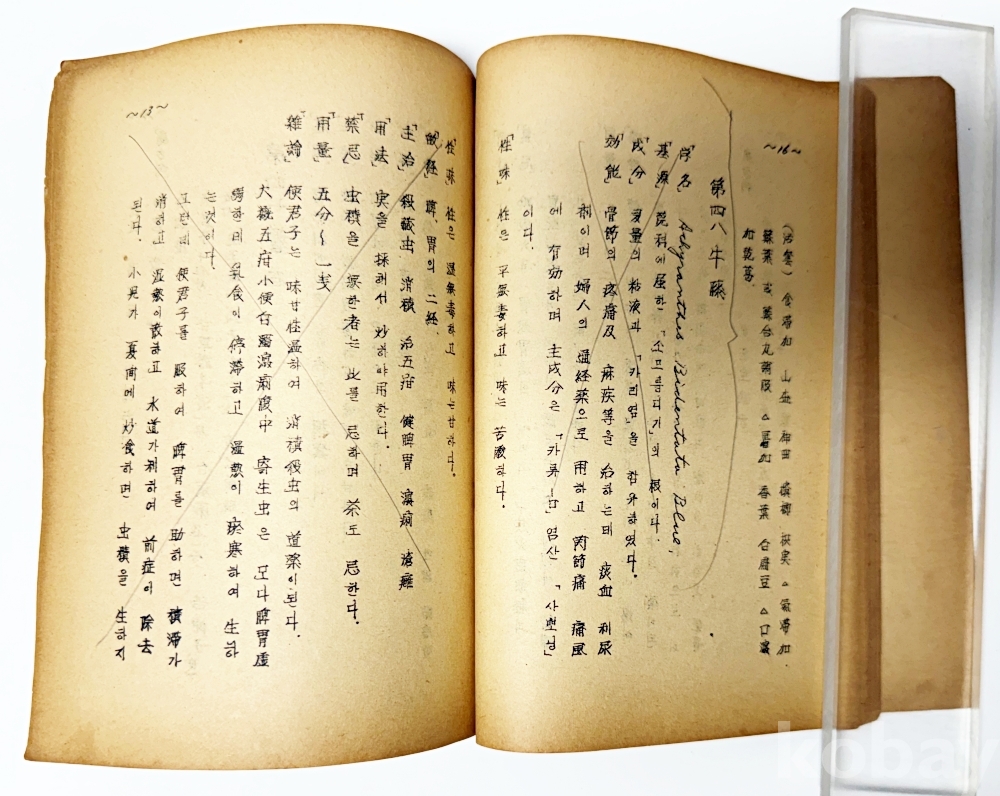 ~16~
(治糞) 食滯加 山査 神曲 檳榔 枳実 △氣滯加
△口渴
加乾葛
第四八 牛膝
「学名」 Achyranthes Bidentata Blue,
「基源」 莧科에 屬하는 「소므릅디기」의 根이다.
「成分」 多量의 粘液과 「카리염」을 含有하였다.
「効能」 骨節의 疼痛及 痳疾等을 治하는데 瘀血 利尿
劑이며 婦人의 通経薬으로 用하고 関節痛 痛風
에 有効하며 主成分은 「카류ㅁ」염산 「사뽀닝」
이다.
「性味」 性은 平無毒하고 味는 苦酸하다.
~13~
「性味」 性은 溫無毒하고 味는 甘하다.
「帰経」 脾、胃의 二経.
「主治」 殺蛔虫 消積 治五疳 健脾胃 瀉痢 瘡癬
「用法」 実을 採해서 炒하야 用한다.
「禁忌」 虫積을 無한 者는 此를 忌하며 茶도 忌한다.
「用量」 五分~一戋
「雜論」 使君子는 味甘性溫하여 消積殺虫의 道薬이 된다.
大槪 五疳 小便白濁 瀉痢 腹中 寄生虫은 모다 脾胃虛
弱하며 乳食이 停滯하고 濕熱이 瘀寒하여 生하
는것이다.
使君子를 服하여 脾胃를 助하면 積滯가
消하고 濕熱이 散하고 水道가 利하여 前症이 除去
된다. 小児가 夏間에 炒食하면 虫積을 生하지